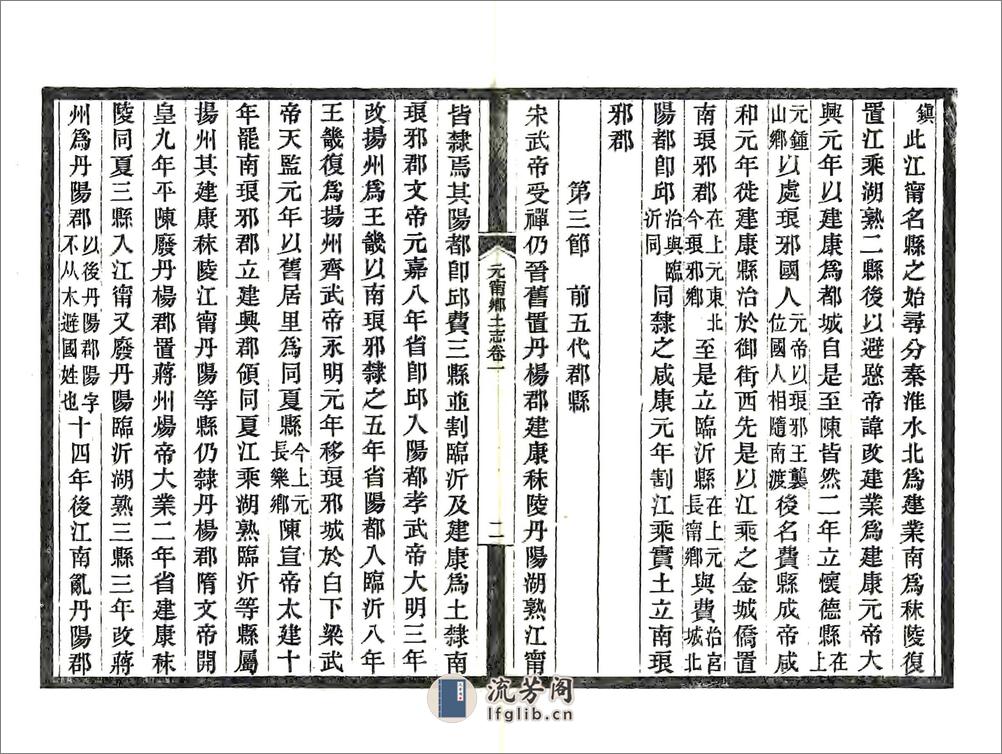 鎭此江甯名縣之始尋分秦淮水北爲建業南爲秣陵復
置江乘湖熟二縣後以避愍帝諱改建業爲建康元帝大
興元年以建康爲都城自是至陳皆然二年立懷德縣在上
元鍾山鄉以處琅邪國人元帝以琅邪王襲位國人相隨南渡後名費縣成帝咸
和元年徙建康縣治於御街西先是以江乘之金城僑置
南琅邪郡在上元東北今琅邪鄉至是立臨沂縣在上元長甯鄉與費治宮城北
陽都卽邱治與臨沂同同隸之咸康元年割江乘實土立南琅
邪郡
第三節　前五代郡縣
宋武帝受禪仍晉舊置丹楊郡建康秣陵丹陽湖熟江甯
元甯鄉土志卷二
二
皆隸焉其陽都卽邱費三縣並割臨沂及建康爲土隸南
琅邪郡文帝元嘉八年省卽邱入陽都孝武帝大明三年
改揚州爲王畿以南琅邪隸之五年省陽都入臨沂八年
王畿復爲揚州齊武帝永明元年移琅邪城於白下梁武
帝天監元年以舊居里爲同夏縣今上元長樂鄉陳宣帝太建十
年罷南琅邪郡立建興郡領同夏江乘湖熟臨沂等縣屬
揚州其建康秣陵江甯丹陽等縣仍隸丹楊郡隋文帝開
皇九年平陳廢丹楊郡置蔣州煬帝大業二年省建康秣
陵同夏三縣入江甯又廢丹陽臨沂湖熟三縣三年改蔣
州爲丹陽郡以後丹陽郡陽字不从木避國姓也十四年後江南亂丹陽郡
流芳阁
lfglib.cn